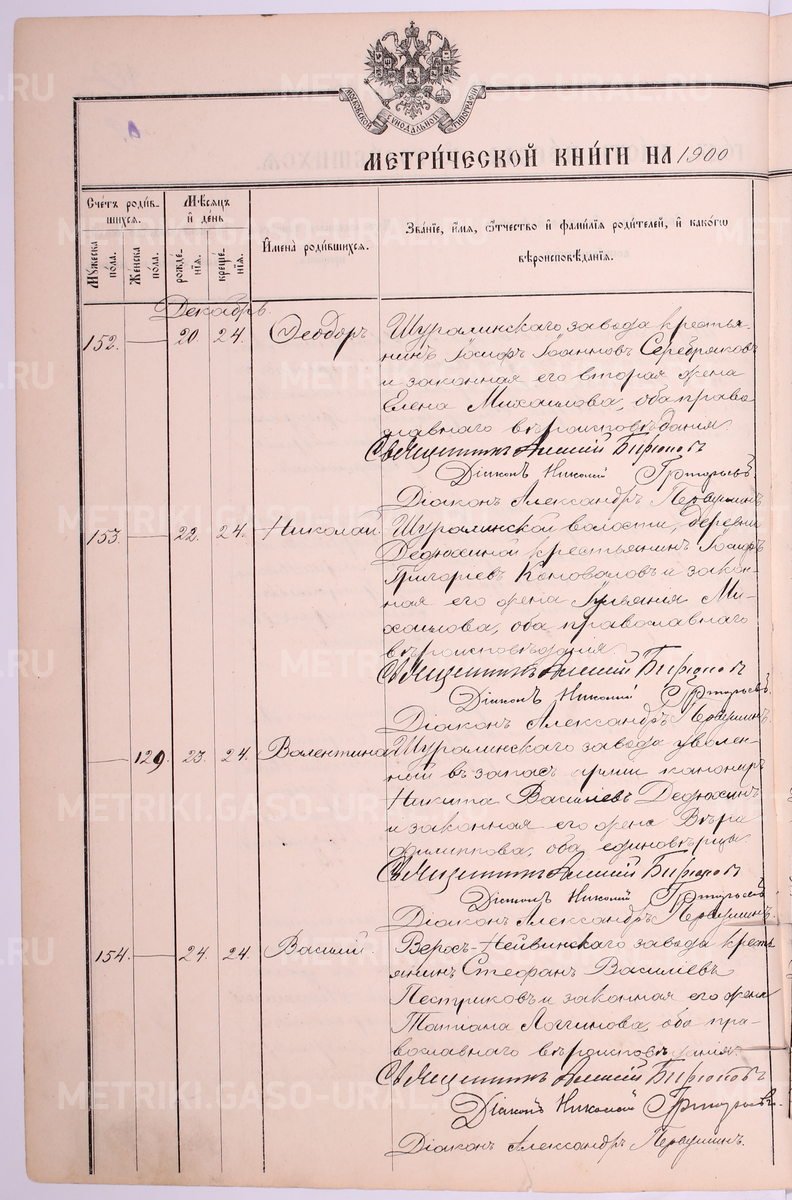 МЕТРИ́ЧЕСКОЙ КНИ́ГИ НА 1900
Сче́тъ роди́в-
шихся.
Мѣ́сяцъ
и҆ де́нь
Му́жеска
по́ла.
Же́нска
по́ла.
рожде-
нїя.
креще-
нїя.
И҆мена̀ роди́вшихся.
Зва́нїе, и҆́мя, ѻ҆́тчество и҆ фами́лїя роди́телей, и҆ како́гѡ
вѣроисповѣ́данїя.
Декабрь.
152. — 20 24. Ѳеодоръ
Шуралинскаго завода крестья-
нинъ Іосифъ Іоанновъ Серебряковъ
и законная его вторая жена
Елена Михаилова, оба право-
славнаго вѣроисповѣданія.
Священникъ Алексій Бирюковъ
Діаконъ Николай Григорьевъ.
Діаконъ Александръ Первушинъ
153 — 22. 24. Николай.
Шуралинской волости, деревни
Дедюхиной крестьянинъ Іосифъ
Григоріевъ Коноваловъ и закон-
ная его жена Гуліанія Ми-
хаилова, оба православнаго
вѣроисповѣданія.
Священникъ Алексій Бирюковъ
Діаконъ Николай Григорьевъ.
Діаконъ Александръ Первушинъ.
— 129. 23. 24. Валентина
Шуралинскаго завода уволен-
ный въ запасъ арміи канониръ
Никита Василіевъ Дедюхинъ
и законная его жена Вѣра
Филиппова, оба единовѣрцы.
Священникъ Алексій Бирюковъ
Діаконъ Николай Григорьевъ
Діаконъ Александръ Первушинъ.
154. — 24. 24. Василій.
Верхъ-Нейвинскаго завода кресть-
янинъ Стефанъ Василіевъ
Пестриковъ и законная его жена
Татіана Логгинова, оба пра-
вославнаго вѣроисповѣданія.
Священникъ Алексій Бирюковъ
Діаконъ Николай Григорьевъ.
Діаконъ Александръ Первушинъ.
METRIKI.GASO-URAL.RU